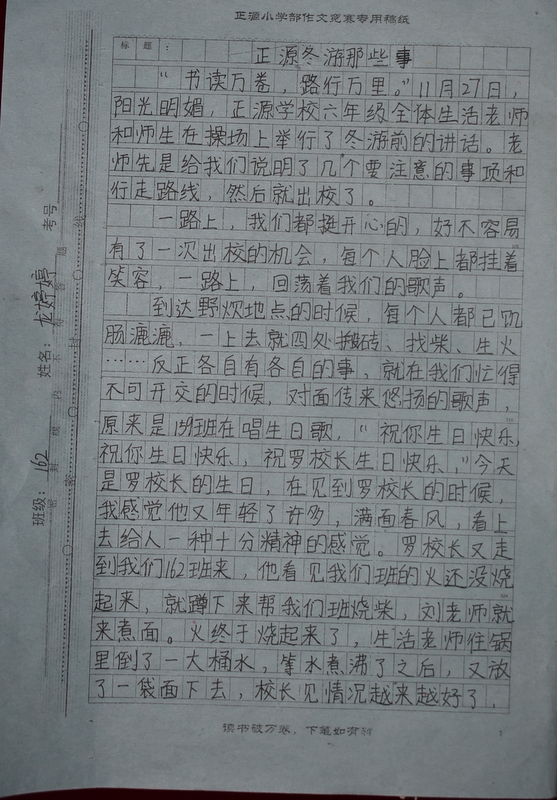 正源小学部作文竞赛专用稿纸
标题：正源冬游那些事
“书读万卷，路行万里。”11月27日，
阳光明媚，正源学校六年级全体生活老师
和师生在操场上举行了冬游前的讲话。老
师先是给我们说明了几个要注意的事项和
行走路线，然后就出校了。
一路上，我们都挺开心的，好不容易
有了一次出校的机会，每个人脸上都挂着
笑容，一路上，回荡着我们的歌声。
到达野炊地点的时候，每个人都已饥
肠漉漉，一上去就四处搬砖、找柴、生火
……反正各自有各自的事，就在我们忙得
不可开交的时候，对面传来悠扬的歌声，
原来是159班在唱生日歌，“祝你生日快乐，
祝你生日快乐，祝罗校长生日快乐，”今天
是罗校长的生日，在见到罗校长的时候，
我感觉他又年轻了许多，满面春风，看上
去给人一种十分精神的感觉。罗校长又走
到我们162班来，他看见我们班的火还没烧
起来，就蹲下来帮我们班烧柴，刘老师就
来煮面。火终于烧起来了，生活老师往锅
里倒了一大桶水，等水煮沸了之后，又放
了一袋面下去，校长见情况越来越好了，
读书破万卷，下笔如有神
1
班级：162 姓名：龙婷婷 考号